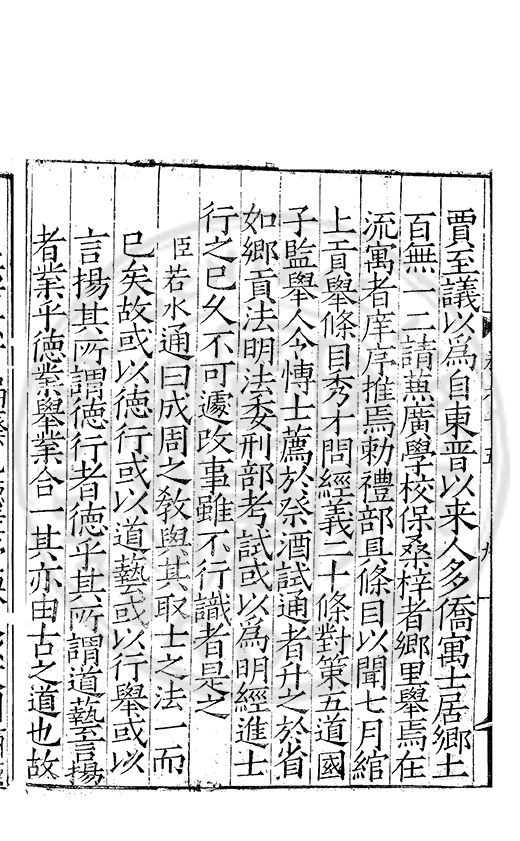 賈至議以爲自東晋以来人多僑寓士居郷土
百無一二請兼廣學校保桑梓者郷里舉焉在
流寓者庠序推焉勅禮部具條目以聞七月綰
上貢舉條目秀才問經義二十條對策五道國
子監舉人令愽士薦於祭酒試通者升之於省
如郷貢法明法委刑部考試或以爲明經進士
行之已久不可遽改事雖不行識者是之
臣若水通曰成周之教與其取士之法一而
已矣故或以徳行或以道藝或以行舉或以
言揚其所謂徳行者徳乎其所謂道藝言揚
者業乎徳業舉業合一其亦由古之道也故